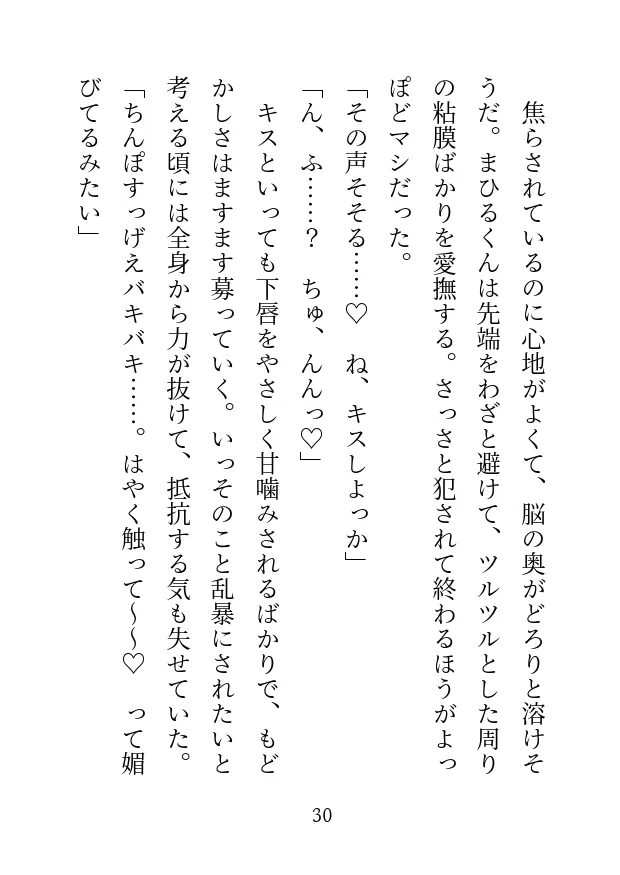 焦らされているのに心地がよくて、脳の奥がどろりと溶けそ
うだ。まひるくんは先端をわざと避けて、ツルツルとした周り
の粘膜ばかりを愛撫する。さっさと犯されて終わるほうがよっ
ぽどマシだった。
「その声そそる……♡　ね、キスしよっか」
「ん、ふ……？　ちゅ、んんっ♡」
キスといっても下唇をやさしく甘噛みされるばかりで、もど
かしさはますます募っていく。いっそのこと乱暴にされたいと
考える頃には全身から力が抜けて、抵抗する気も失せていた。
「ちんぽすっげえバキバキ……。はやく触って～～♡　って媚
びてるみたい」
30